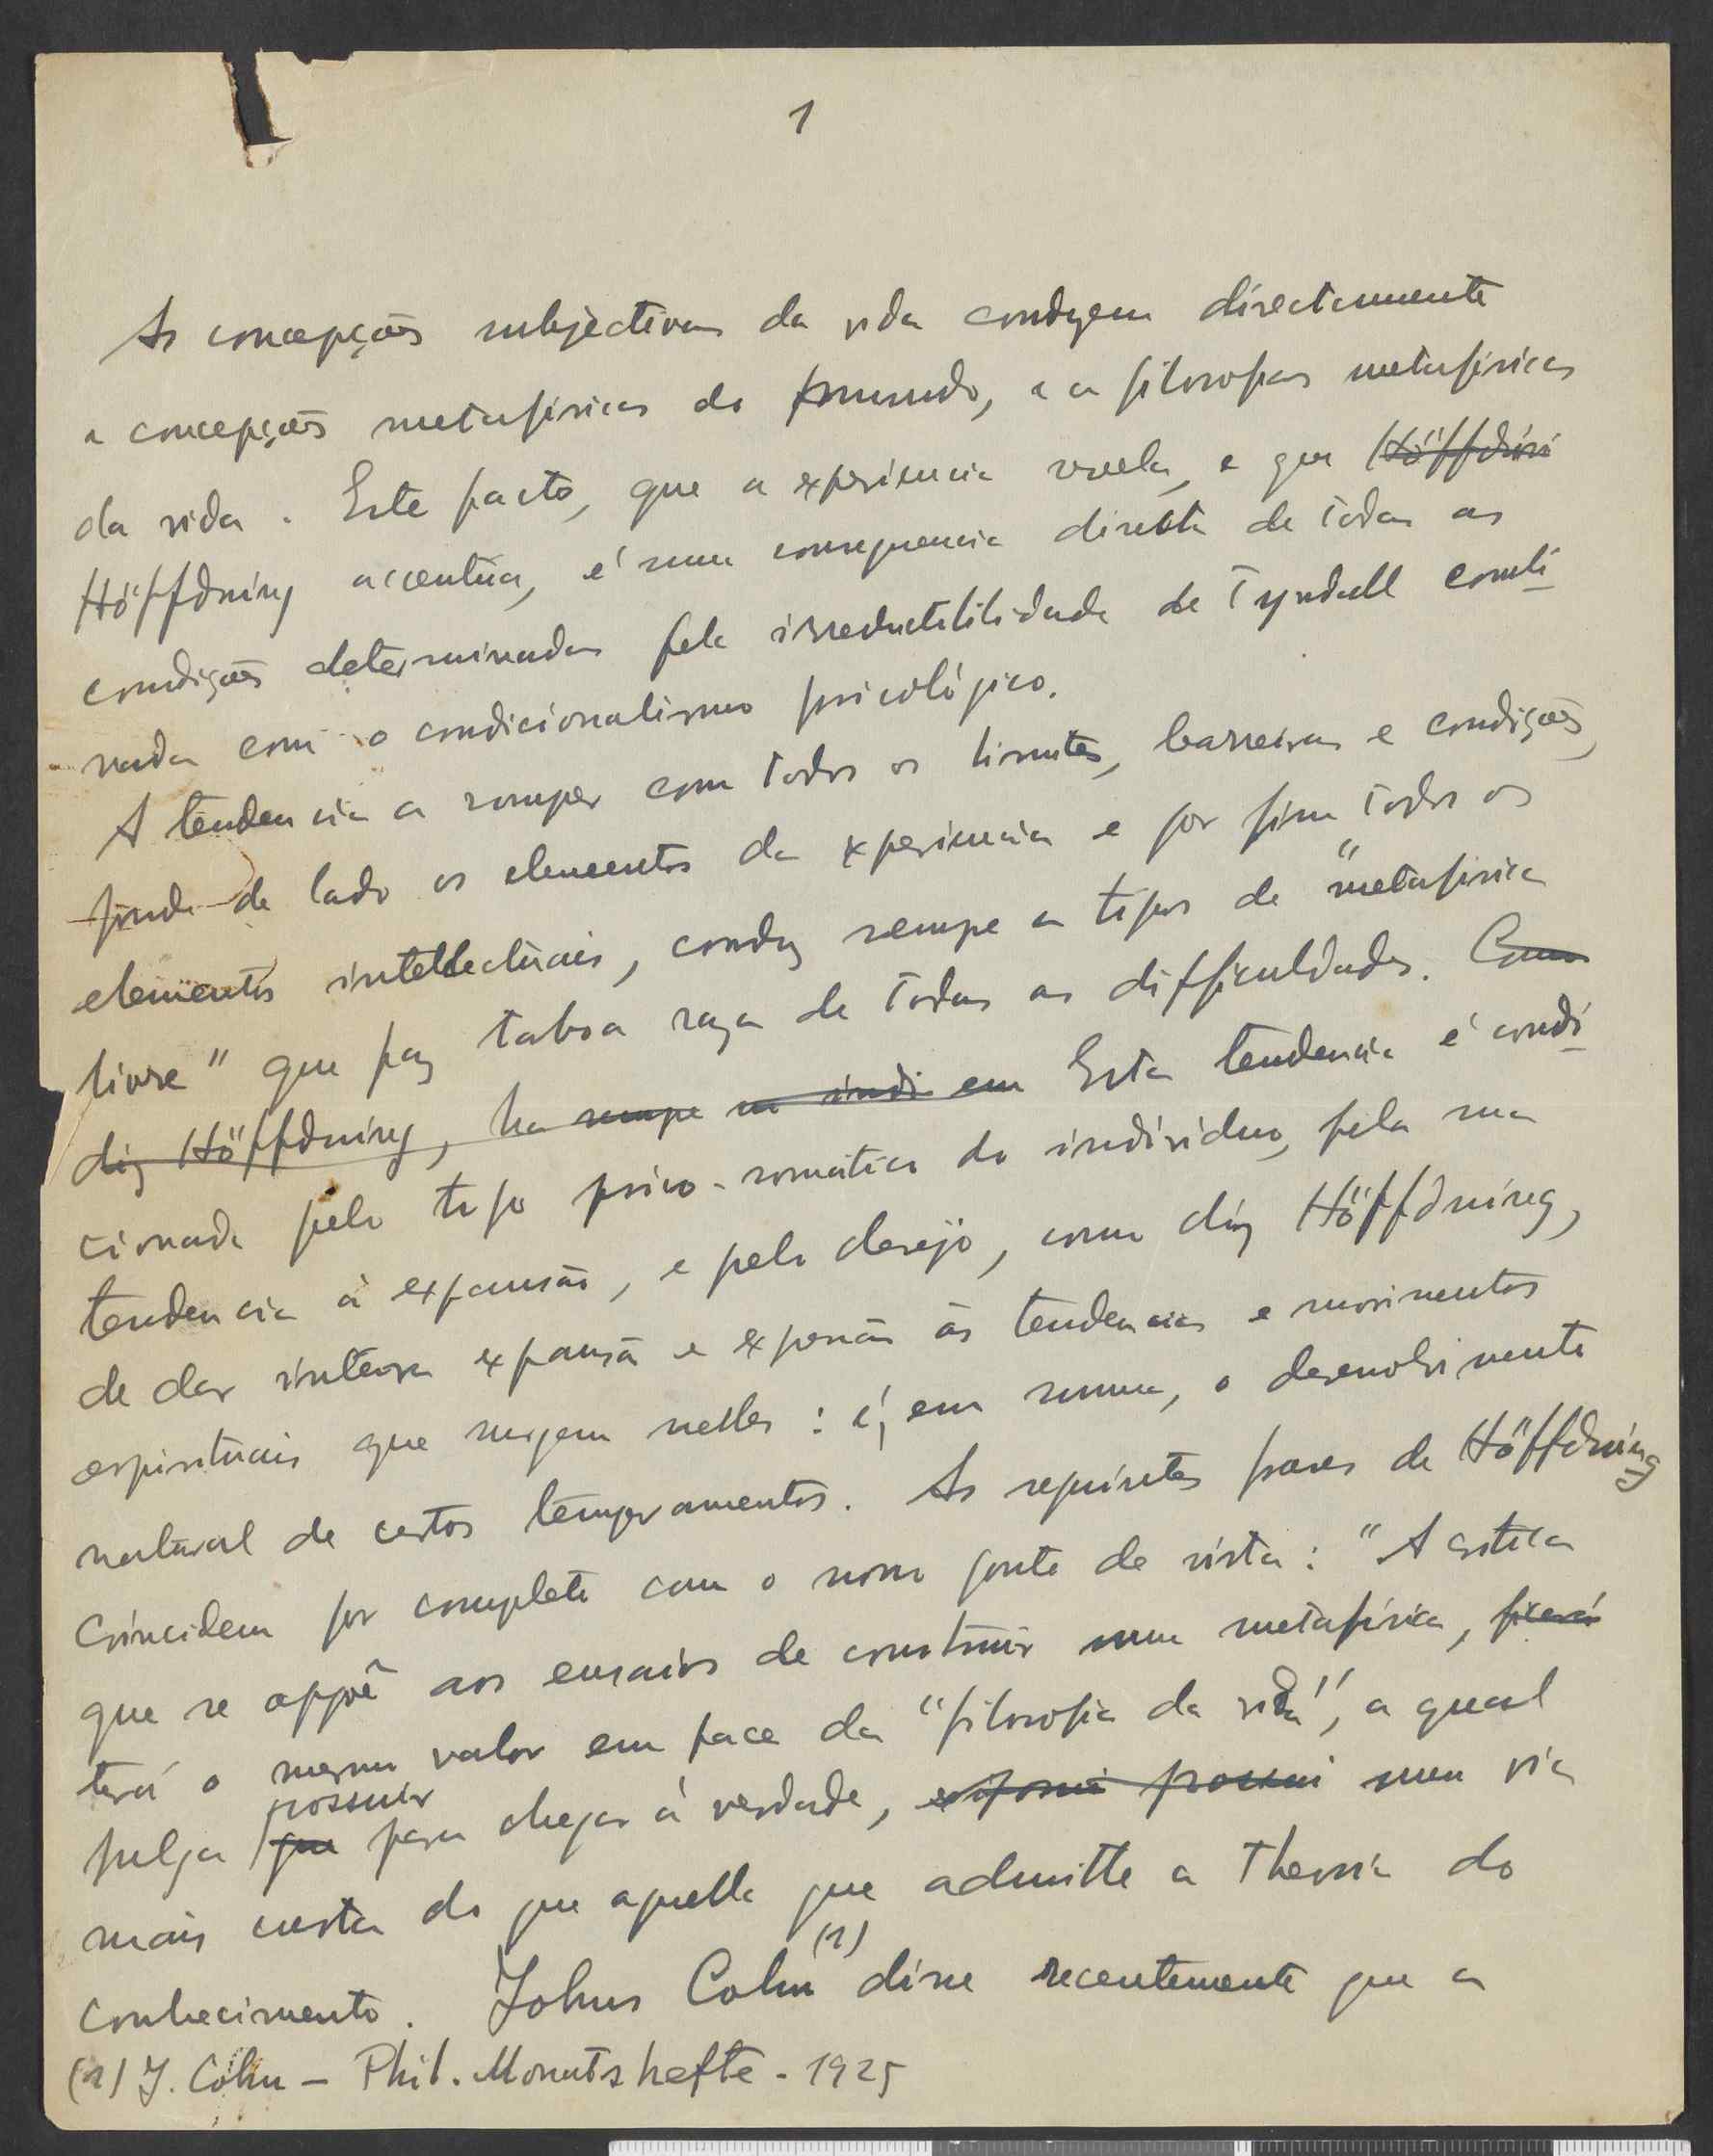 1
As concepções subjectivas da vida conduzem directamente
a concepções metafisicas do mundo, e a filosofias metafisicas
da vida. Este facto, que a experiencia revela, e que Höffdini
Höffdning accentúa, é uma consequencia directa de todas as
condições determinadas pela irreductibilidade de Tyndall combi-
nada com o condicionalismo psicológico.
A tendencia a romper com todos os limites, barreiras e condições,
pondo de lado os elementos da experiencia e por fim todos os
elementos intellectuais, conduz sempre a tipos de "metafisica
livre" que faz taboa raza de todas as difficuldades. Como
diz Höffdning, ha sempre em Esta tendencia é condi-
cionada pelo tipo psico-somatico do individuo, pela sua
tendencia á expansão, e pelo desejo, como diz Höffdning,
de dar inteira expansão e ás tendencias e movimentos
espirituais que surgem nelles: é, em summa, o desenvolvimento
natural de certos temperamentos. As seguintes frases de Höffdning
coincidem por completo com o nosso ponto de vista: "A critica
que se oppõe aos ensaios de construir uma metafisica, ficará
terá o mesmo valor em face da "filosofia da vida", a qual
julga que possuir para chegar á verdade, possui uma via
mais certa do que aquella que admitte a theoria do
conhecimento. Johns Cohn (1) disse recentemente que a
(1) J. Cohn – Phil. Monatshefte - 1925